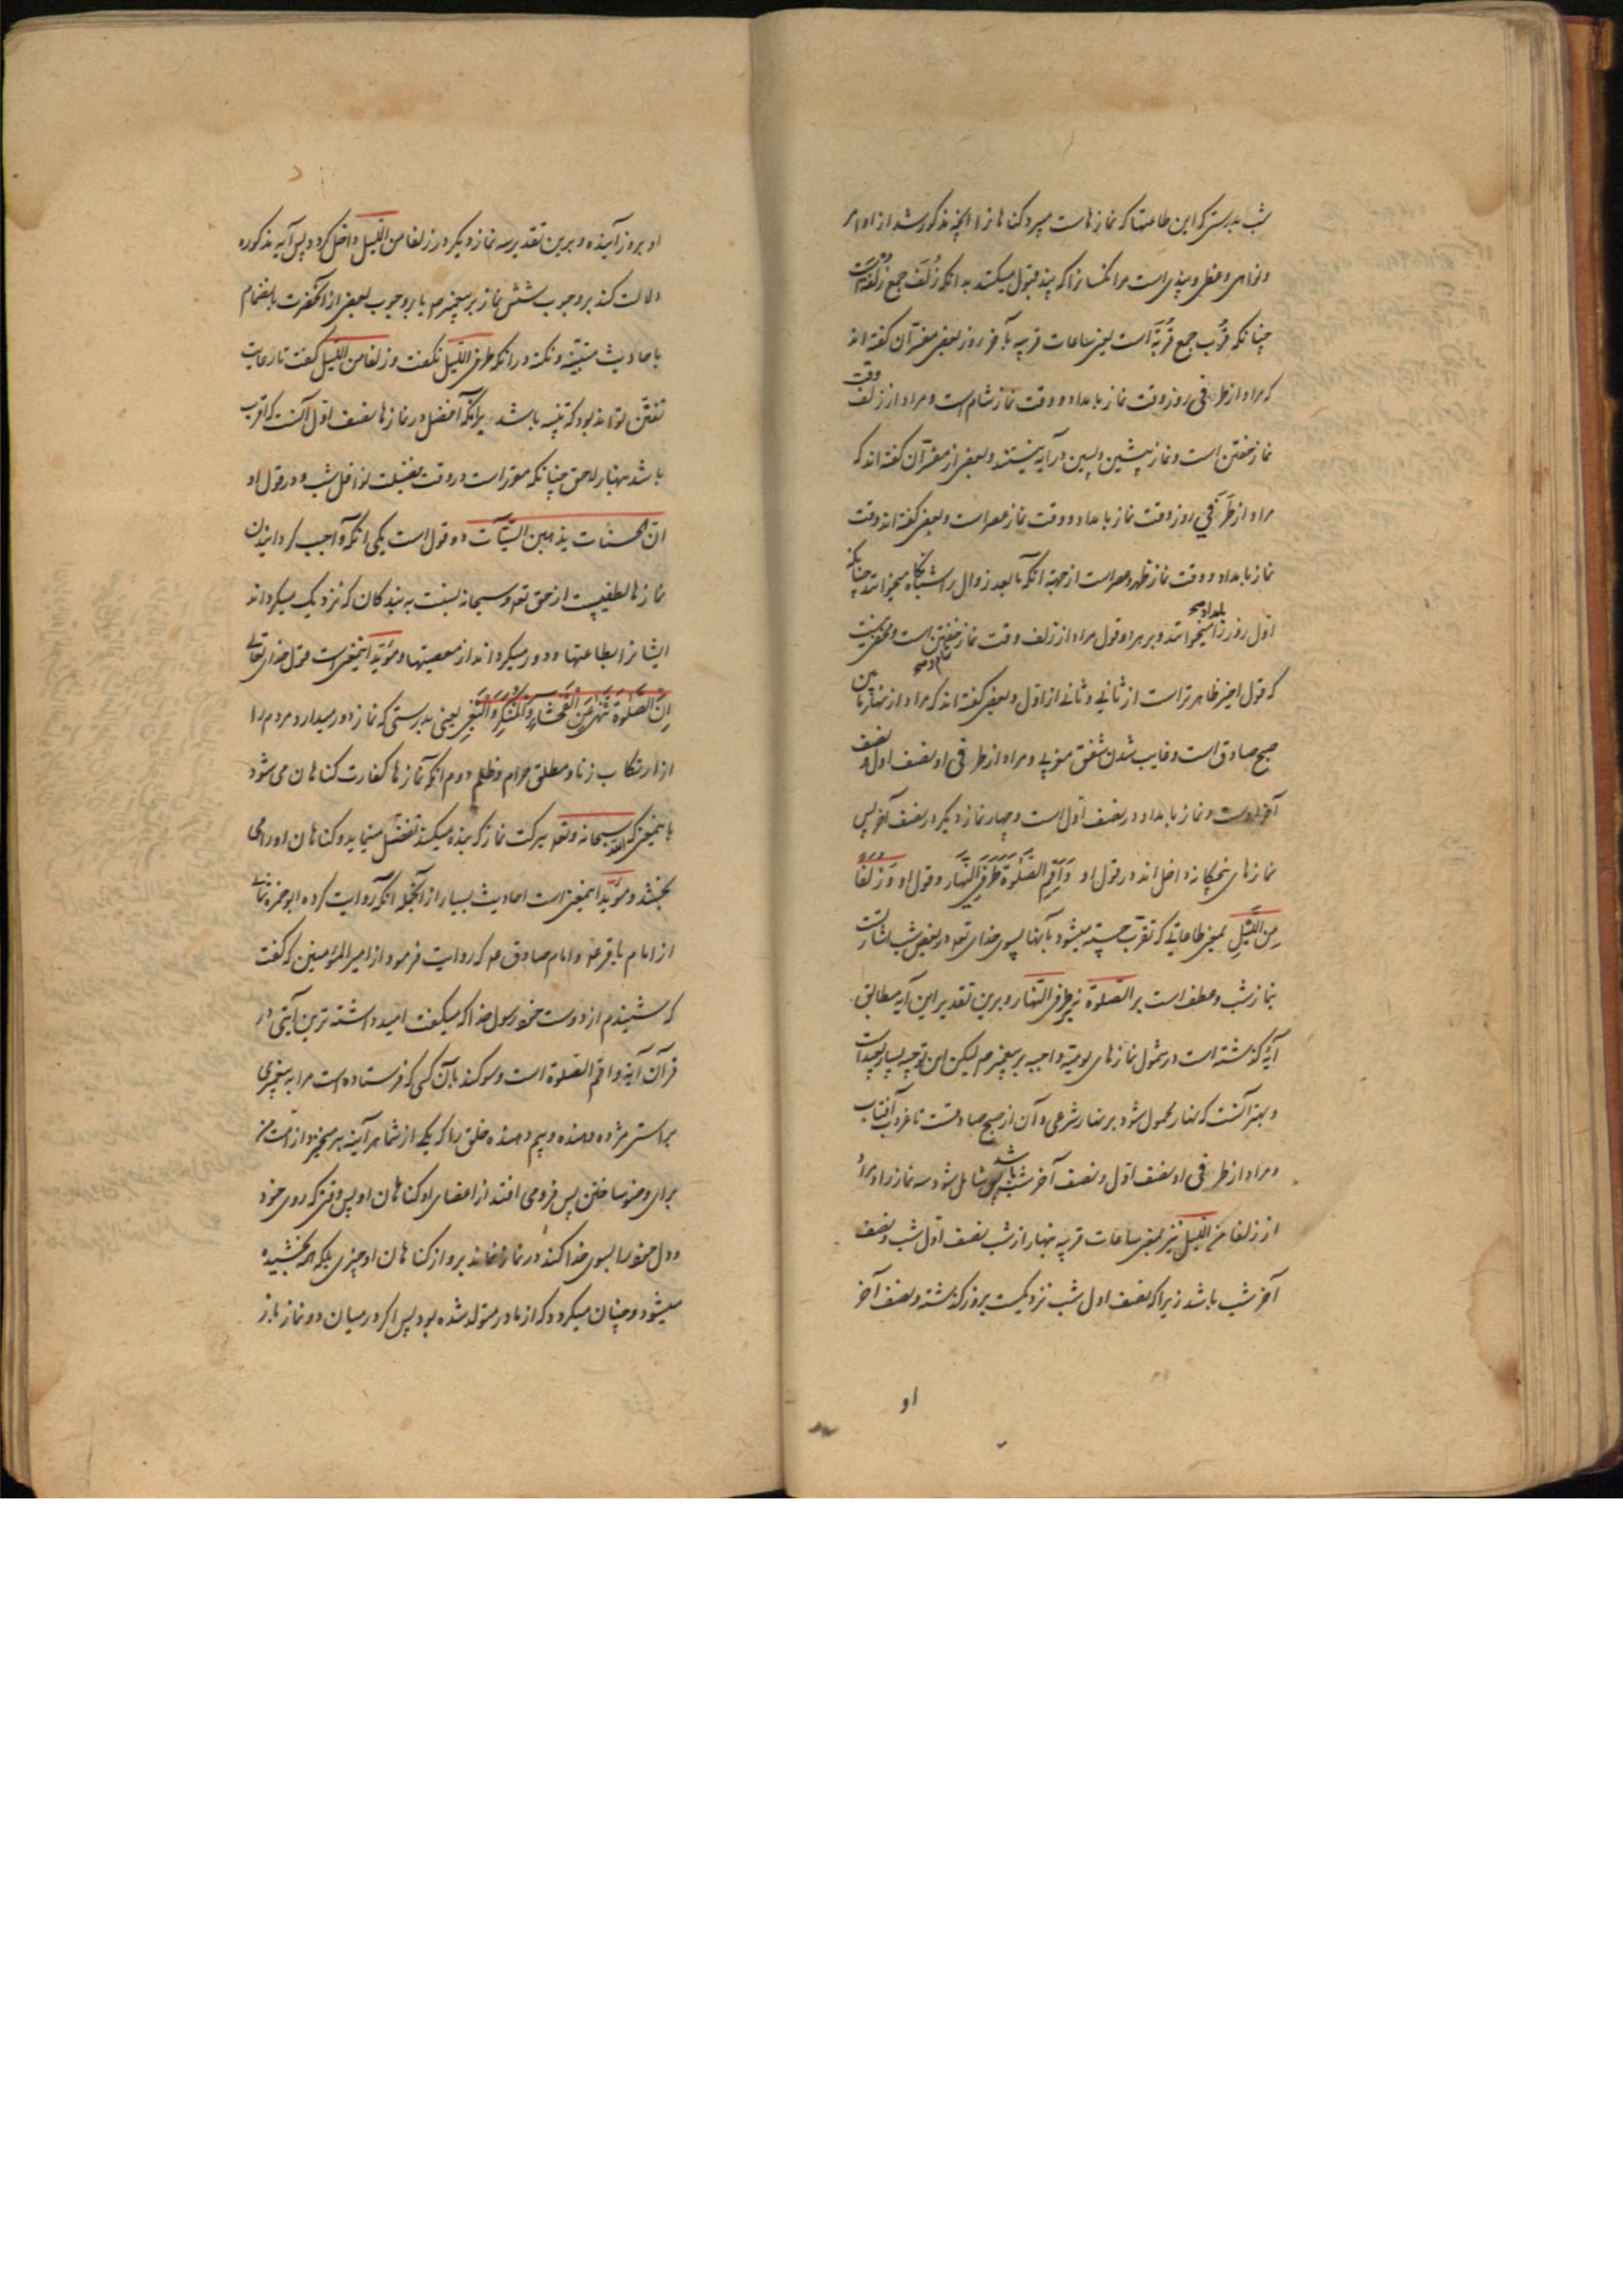 شب بدرستی که این طاعتها که نمازهاست میبرد کناهانرا انچه مذکور شد از اوامر
و نواهی وعظی و پندی است مر انکسانرا که پند قبول میکنند بدانکه زُلَف جمع زُلْفَة است
چنانکه قُرَب جمع قُرْبَة است یعنی ساعات قریبه بآخر روز بعضی مفسران کفته اند
که مراد از طرفی روز وقت نماز بامداد و وقت نماز شام است و مراد از زلف وقت
نماز خفتن است و نماز پیشین و پسین در آیه نیستند و بعضی از مفسران کفته اند که
مراد از طَرَفَی روز وقت نماز بامداد و وقت نماز عصر است و بعضی کفته اند وقت
نماز بامداد و وقت نماز ظهر و عصر است از جهة انکه ما بعد زوال را شبانکاه میخوانند چنانکه
اول روز را بامداد میخوانند و بر هر دو قول مراد از زلف وقت نماز خفتن است و مخفی نیست
که قول اخیر ظاهرتر است از ثانی و ثانی از اول و بعضی کفته اند که مراد از نهار مابین
صبح صادق است و غایب شدن شفق مغربی و مراد از طرفی او نصف اول و نصف
آخر اوست و نماز بامداد در نصف اول است و چهار نماز دیکر در نصف آخر پس
نمازهای پنجکانه داخل اند در قول او وَاَقِمِ الصَّلٰوةَ طَرَفَیِ النَّهَارِ و قول او وَزُلَفًا
مِنَ اللَّیْلِ بمعنی طاعاتی که تقرب جسته میشود بآنها بسوی خدای تع در بعض شب اشارتست
بنماز شب و عطف است بر الصلوة نه بر طرفی النهار و برین تقدیر این آیه مطابق
آیهٔ کذشته است در شمول نمازهای یومیه واجبه بر پیغمبر ص لیکن این توجیه بسیار بعید است
و بهتر آنست که نهار محمول شود بر نهار شرعی و آن از صبح صادقست تا غروب آفتاب
و مراد از طرفی او نصف اول و نصف آخر باشد پس شامل شود سه نماز را و مراد
از زلفا من اللیل نیز بمعنی ساعات قریبه بنهار از شب نصف اول شب و نصف
آخر شب باشد زیرا که نصف اول شب نزدیکست بروز کذشته و نصف آخر
او
او بروز آینده و برین تقدیر سه نماز دیکر در زلفا من اللیل داخل کردد پس آیه مذکوره
دلالت کند بر وجوب شش نماز بر پیغمبر ص یا بر وجوب بعضی از آنحضرت بانضمام
باحادیث مبینه و نکته در انکه طرفی اللیل نکفت و زلفا من اللیل کفت تا رعایت
تفنن تواند بود که تنبیه باشد برانکه افضل در نمازها نصف اول آنست که اقرب
باشد بنهار لاحق چنانکه مقرر است در وقت فضیلت نوافل شب و در قول او
ان الحسنات یذهبن السیئات دو قول است یکی انکه واجب کردانیدن
نمازها لطفیست از حق تع و سبحانه نسبت به بندکان که نزدیک میکرداند
ایشانرا بطاعتها و دور میکرداند از معصیتها و مؤید اینمعنی است قول خدای تعالی
اِنَّ الصَّلٰوةَ تَنْهٰی عَنِ الْفَحْشَاءِ وَالْمُنْکَرِ وَالْبَغْیِ یعنی بدرستی که نماز دور میدارد مردم را
از ارتکاب زنا و مطلق حرام و ظلم دوم انکه نمازها کفارت کناهان می شود
باینمعنی که الله سبحانه و تع ببرکت نماز که بنده میکند تفضل مینماید و کناهان او را می
بخشد و مؤید اینمعنی است احادیث بسیار از آنجمله انکه روایت کرده ابو حمزه ثمالی
از امام باقر ع یا امام صادق ع که روایت فرمود از امیر المؤمنین که کفت
که شنیدم از دوست خود رسول خدا که میکفت امید داشته ترین آیتی در
قرآن آیه و اقم الصلوة است و سوکند بآن کسی که فرستاده است مرا به پیغمبری
براستی مژده دهنده و بیم دهنده خلق را که یکی از شما هر آینه بر میخیزد از امت من
برای وضو ساختن پس فرو می افتد از اعضای او کناهان او پس وقتی که روی خود
و دل خود را بسوی خدا کند در نماز نماند برو از کناهان او چیزی بلکه همه بخشیده
میشود و چنان میکردد که از مادر متولد شده بود پس اکر در میان دو نماز باز